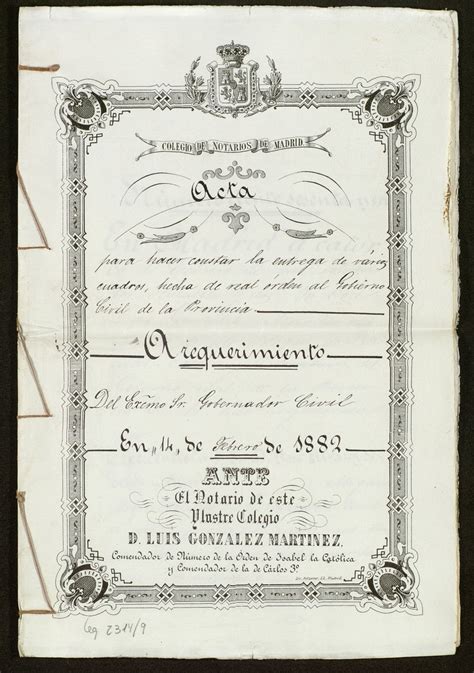 COLEGIO DE NOTARIOS DE MADRID.
Acta
para hacer constar la entrega de varios
cuadros, hecha de real órden al Gobierno
Civil de la Provincia.
A requerimiento
Del Exc̃mo Sr. Gobernador Civil
En 14, de Febrero de 1882
ANTE
El Notario de este
Ylustre Colegio
D. LUIS GONZALEZ MARTINEZ,
Comendador de Número de la Orden de Isabel la Católica
y Comendador de la de Cárlos 3º
Leg 2314/9